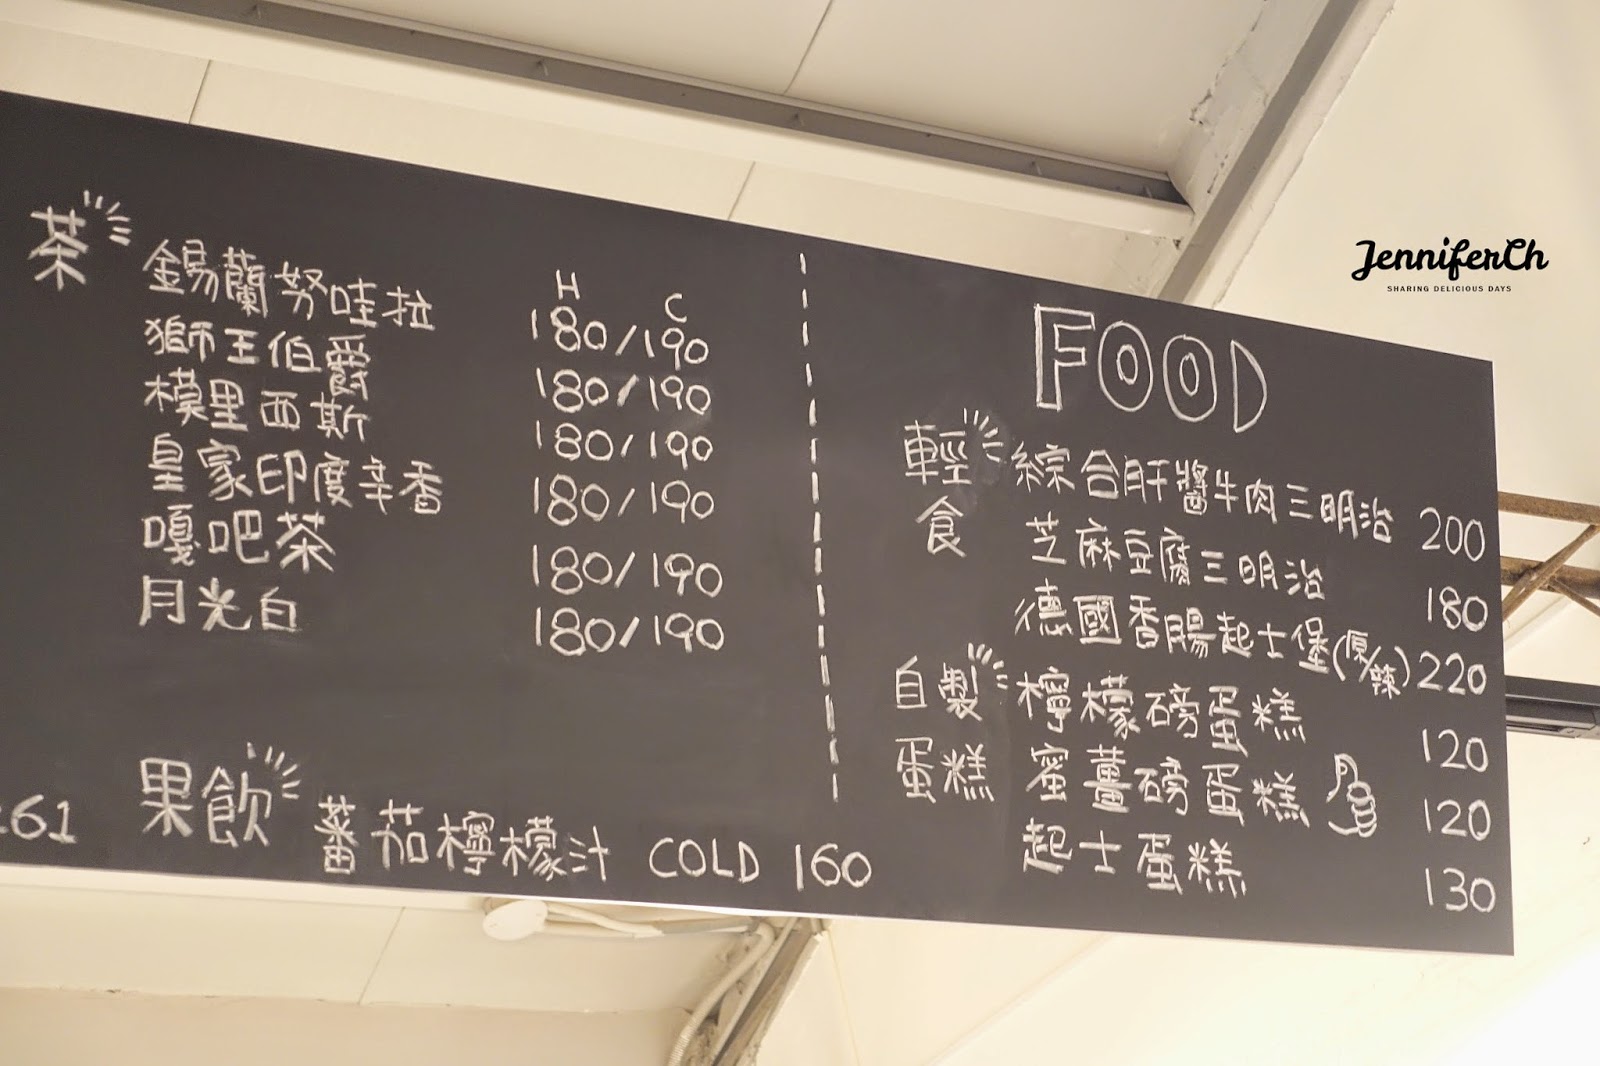 茶
H C
錫蘭努哇拉 180/190
獅王伯爵 180/190
模里西斯 180/190
皇家印度辛香 180/190
嘎吧茶 180/190
月光白 180/190
61
果飲
蕃茄檸檬汁 COLD 160
FOOD
輕食
綜合肝醬牛肉三明治 200
芝麻豆腐三明治 180
德國香腸起士堡(原/辣) 220
自製蛋糕
檸檬磅蛋糕 120
蜜薑磅蛋糕 120
起士蛋糕 130
JenniferCh
SHARING DELICIOUS DAYS